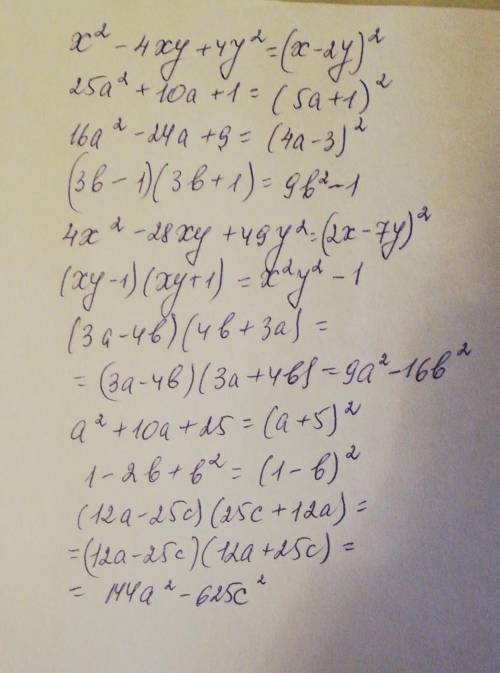 x² - 4xy + 4y² = (x - 2y)²
25a² + 10a + 1 = (5a + 1)²
16a² - 24a + 9 = (4a - 3)²
(3b - 1)(3b + 1) = 9b² - 1
4x² - 28xy + 49y² = (2x - 7y)²
(xy - 1)(xy + 1) = x²y² - 1
(3a - 4b)(4b + 3a) =
= (3a - 4b)(3a + 4b) = 9a² - 16b²
a² + 10a + 25 = (a + 5)²
1 - 2b + b² = (1 - b)²
(12a - 25c)(25c + 12a) =
= (12a - 25c)(12a + 25c) =
= 144a² - 625c²